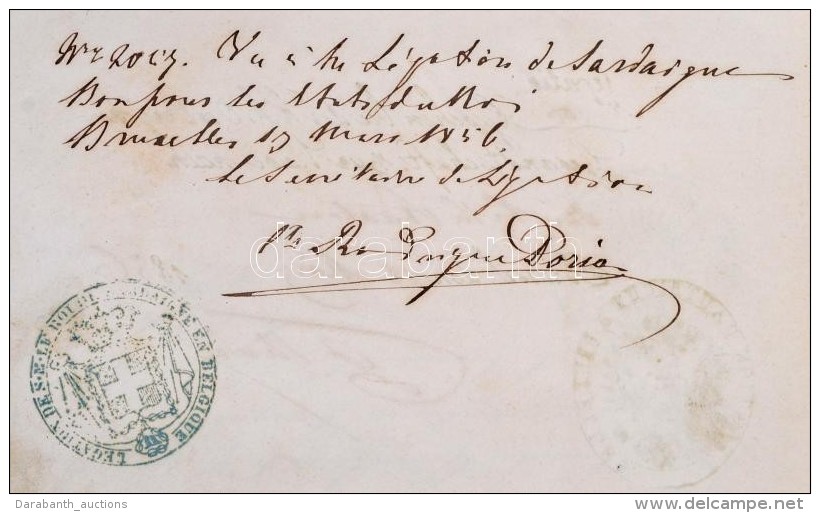 Nr 2017. Vu à la Légation de Sardaigne
Bon pour les Etats du Roi
Bruxelles 17 Mars 1856.
Le Secrétaire de Légation
Rodrigue Doria
LEGATION DE S. M. LE ROI DE SARDAIGNE EN BELGIQUE
darabanth
Darabanth_auctions
delcampe.net